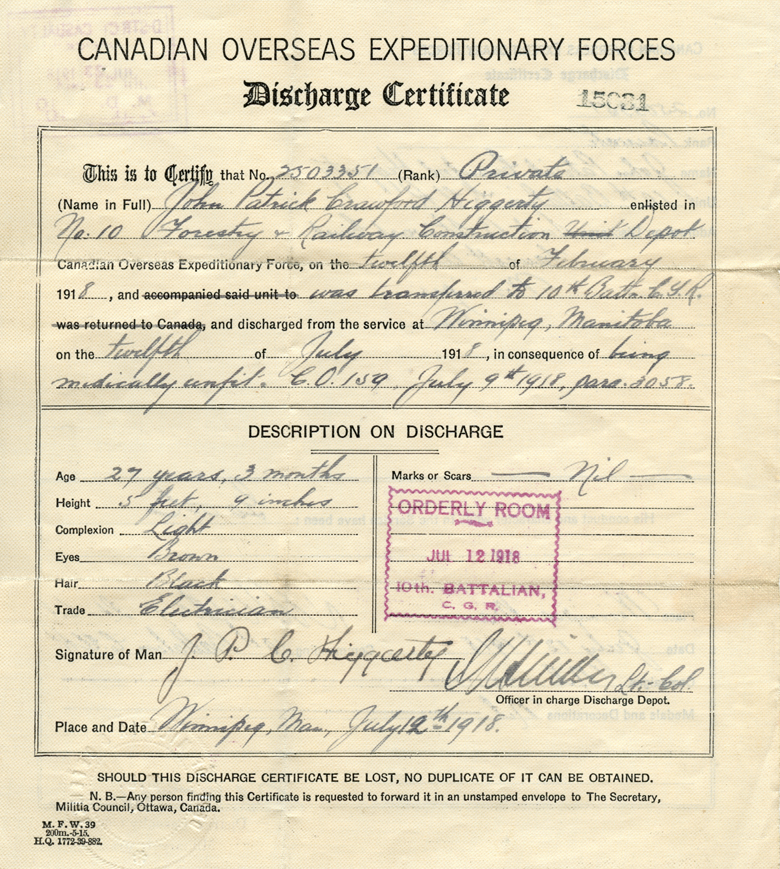 CANADIAN OVERSEAS EXPEDITIONARY FORCES
Discharge Certificate 15081
This is to Certify that No. 2503351 (Rank) Private
(Name in Full) John Patrick Crawford Higgerty enlisted in
No. 10 Forestry & Railway Construction Unit Depot
Canadian Overseas Expeditionary Force, on the twelfth of February
1918, and accompanied said unit to was transferred to 10th Battn C.G.R.
was returned to Canada, and discharged from the service at Winnipeg, Manitoba
on the twelfth of July 1918, in consequence of being
medically unfit. C.O. 159, July 9th 1918, para. 3058.
DESCRIPTION ON DISCHARGE
Age 27 years, 3 months
Height 5 feet, 9 inches
Complexion Light
Eyes Brown
Hair Black
Trade Electrician
Marks or Scars Nil
ORDERLY ROOM
JUL 12 1918
10th. BATTALIAN,
C. G. R.
Signature of Man J. P. C. Higgerty
Lt. Col.
Officer in charge Discharge Depot.
Place and Date Winnipeg, Man, July 12th 1918.
SHOULD THIS DISCHARGE CERTIFICATE BE LOST, NO DUPLICATE OF IT CAN BE OBTAINED.
N. B.—Any person finding this Certificate is requested to forward it in an unstamped envelope to The Secretary,
Militia Council, Ottawa, Canada.
M. F. W. 39
200m.-5-15.
H.Q. 1772-39-882.